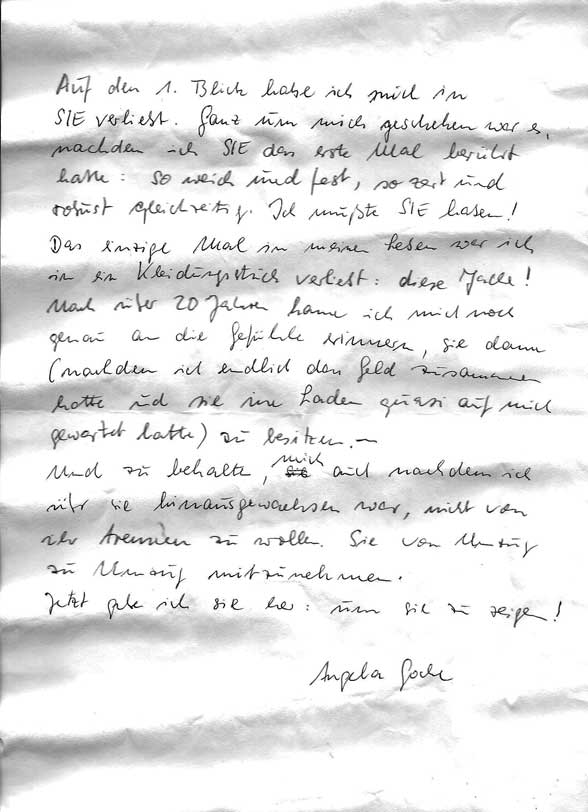 Auf den 1. Blick habe ich mich in
SIE verliebt. Ganz um mich geschehen war es,
nachdem ich SIE das erste Mal berührt
hatte: so weich und fest, so zart und
robust gleichzeitig. Ich mußte SIE haben!
Das einzige Mal in meinem Leben war ich
in ein Kleidungsstück verliebt: diese Jacke!
Nach über 20 Jahren kann ich mich noch
genau an die Gefühle erinnern, sie dann
(nachdem ich endlich das Geld zusammen
hatte und sie im Laden quasi auf mich
gewartet hatte) zu besitzen.~
Und zu behalten, mich auch nachdem ich
über sie hinausgewachsen war, nicht von
ihr trennen zu wollen. Sie von Umzug
zu Umzug mitzunehmen.
Jetzt gebe ich sie her: um sie zu zeigen!
Angela